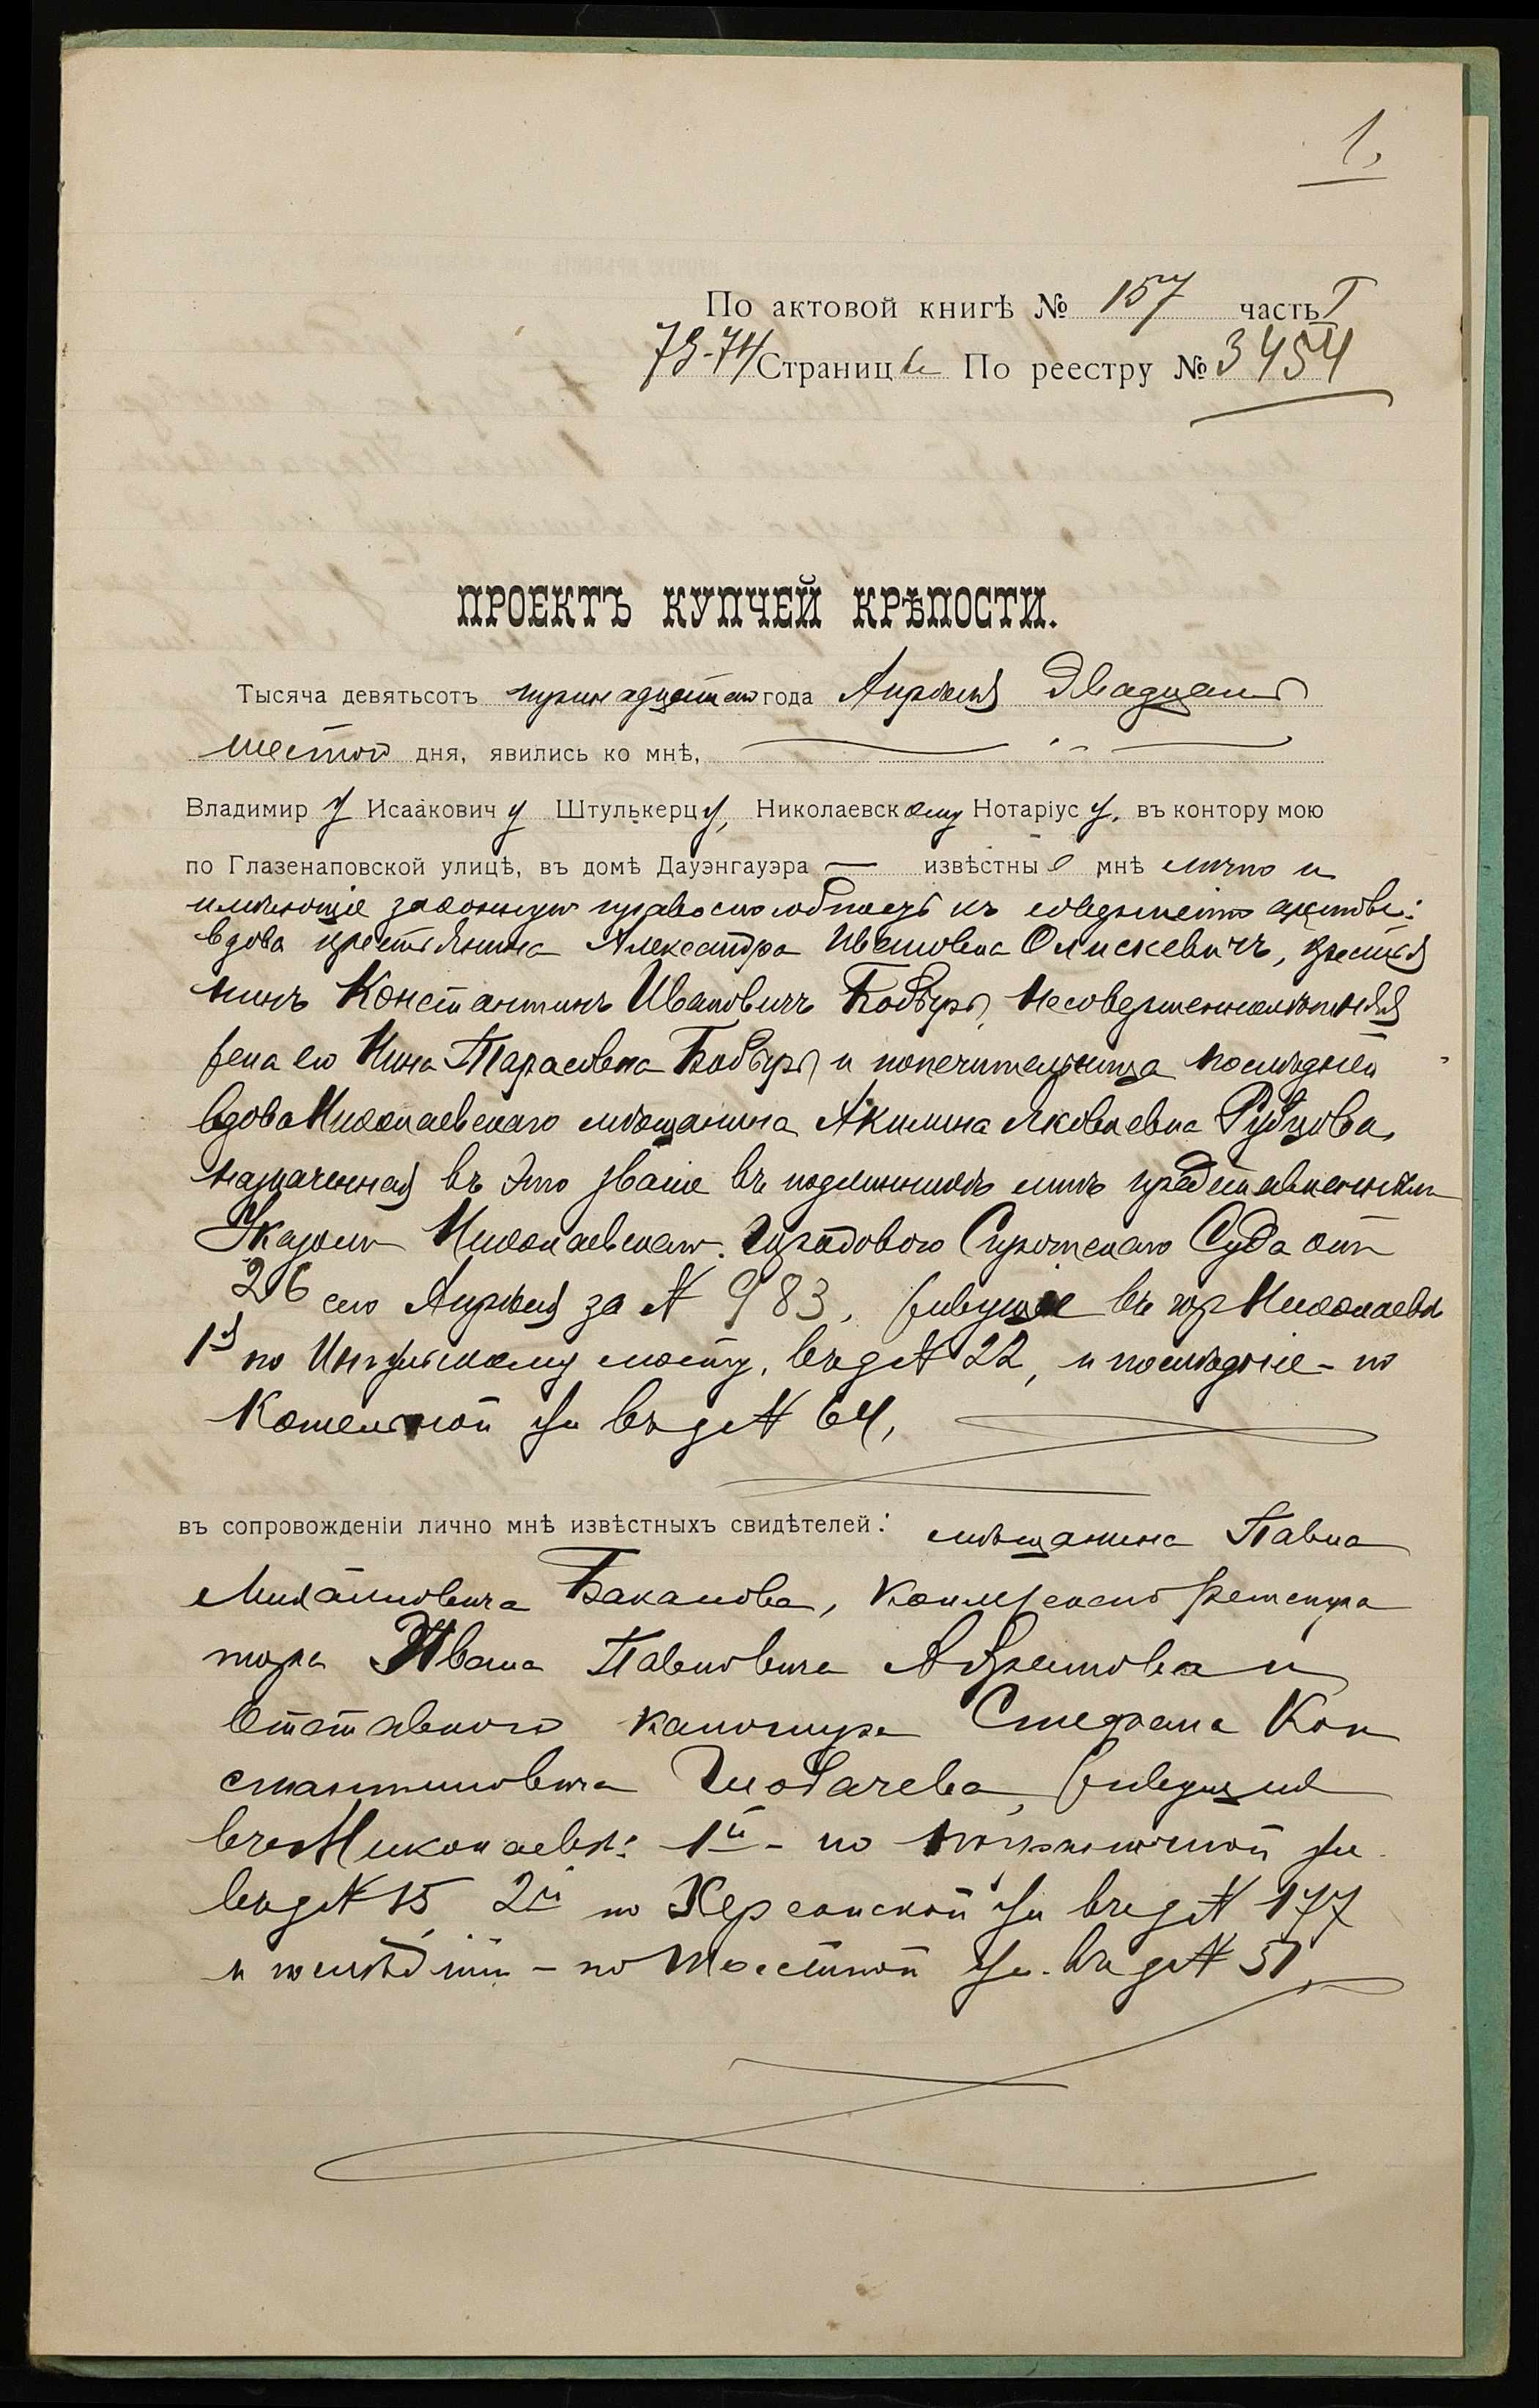 1.
По актовой книгѣ № 157 часть I
73-74 Страницѣ По реестру № 3454
ПРОЕКТЪ КУПЧЕЙ КРѢПОСТИ.
Тысяча девятьсотъ тринадцатаго года Апрѣля двадцать
шестого дня, явились ко мнѣ,
Владимиру Исааковичу Штулькерцу, Николаевскому Нотаріусу, въ контору мою
по Глазенаповской улицѣ, въ домѣ Дауэнгауэра — извѣстные мнѣ лично и
имѣющіе законную правоспособность къ совершенію актовъ:
вдова крестьянина Александра Ивановна Олискевичъ, крестья
нинъ Константинъ Ивановичъ Бобырь, несовершеннолѣтняя
жена его Нина Тарасовна Бобырь и попечительница послѣдней
вдова Николаевскаго мѣщанина Акилина Яковлевна Рубцова,
назначенная въ это званіе въ подлинникѣ мнѣ представленнымъ
Указомъ Николаевскаго Градового Сиротскаго Суда отъ
26 сего Апрѣля за № 983, живущіе въ гор Николаевѣ
1я по Ингульскому мосту, въ д № 22, и послѣдніе - по
Котельной ул въ д № 64,
въ сопровожденіи лично мнѣ извѣстныхъ свидѣтелей: мѣщанина Павла
Михайловича Баканова, Коллежскаго регистра
тора Ивана Павловича Абрамова и
отставного каптенура Стефана Кон
стантиновича Глобачева, живущихъ
въ г Николаевѣ: 1й - по ул.
въ д № 15, 2й по Херсонской ул въ д № 177
и послѣдній - по ул. въ д № 51